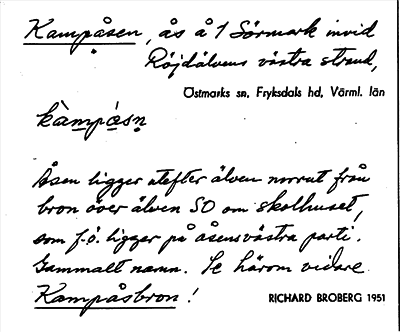 Kampåsen, ås å 1 Sörmark invid
Röjdälvens västra strand,
Östmarks sn, Fryksdals hd, Värml. län
kàmpásn
Åsen ligger utefter älven norrut från
bron över älven SO om skolhuset,
som f.ö. ligger på åsens västra parti.
Gammalt namn. Se härom vidare
Kampåsbron!
RICHARD BROBERG 1951